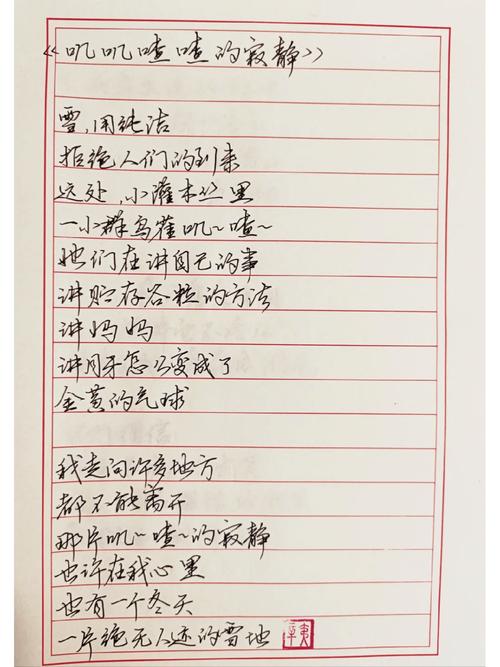 《叽叽喳喳的寂静》
雪,用纯洁
拒绝人们的到来
远处,小灌木丛里
一小群鸟雀叽~喳~
她们在讲自己的事
讲贮存谷粒的方法
讲妈妈
讲月牙怎么变成了
金黄的气球
我走向许多地方
都不能离开
那片叽~喳~的寂静
也许在我心里
也有一个冬天
一片绝无人迹的雪地